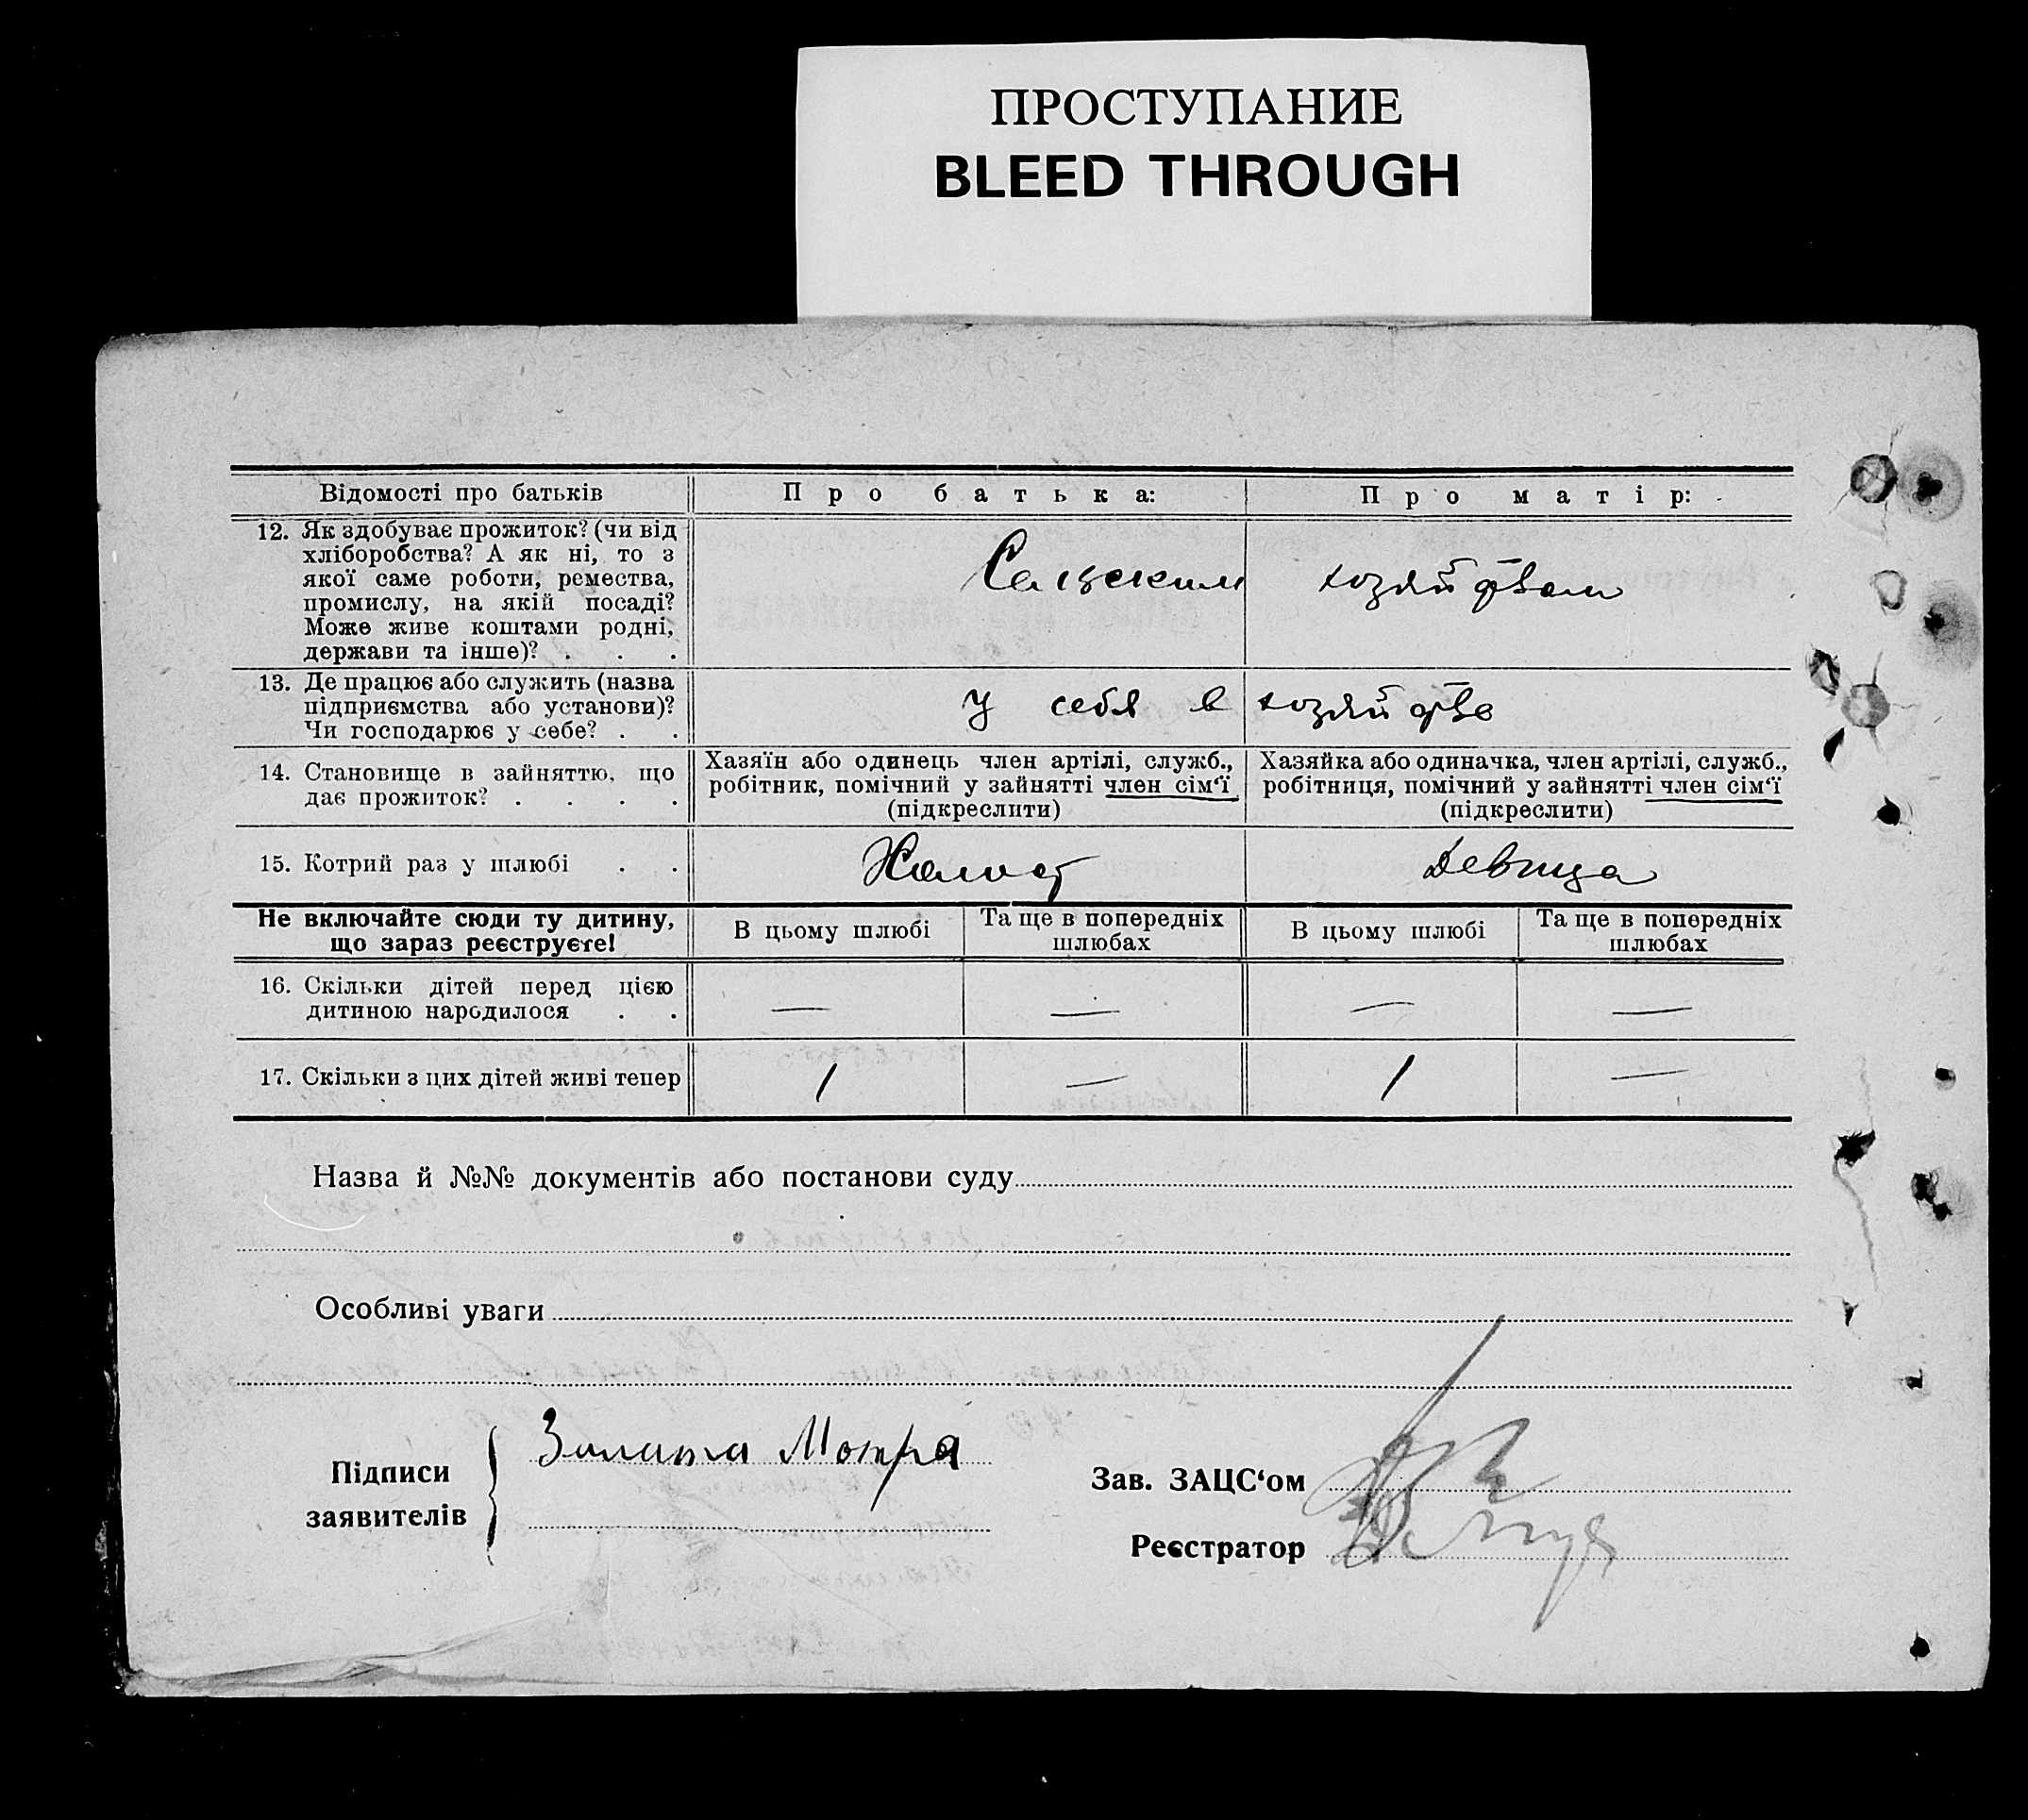 ПРОСТУПАНИЕ
BLEED THROUGH
Відомості про батьків
Про батька:
Про матір:
12. Як здобуває прожиток? (чи від
хліборобства? А як ні, то з
якої саме роботи, ремества,
промислу, на якій посаді?
Може живе коштами родні,
держави та інше)? . . .
Сельским хозяйством
13. Де працює або служить (назва
підприємства або установи)?
Чи господарює у себе? . .
У себя в хозяйстве
14. Становище в зайняттю, що
дає прожиток? . . . .
Хазяїн або одинець член артілі, служб.,
робітник, помічний у зайнятті член сім'ї
(підкреслити)
Хазяйка або одиначка, член артілі, служб.,
робітниця, помічний у зайнятті член сім'ї
(підкреслити)
15. Котрий раз у шлюбі . .
Холост
Девица
Не включайте сюди ту дитину,
що зараз реєструєте!
В цьому шлюбі
Та ще в попередніх
шлюбах
В цьому шлюбі
Та ще в попередніх
шлюбах
16. Скільки дітей перед цією
дитиною народилося . .
— — — —
17. Скільки з цих дітей живі тепер
1 — 1 —
Назва й №№ документів або постанови суду
Особливі уваги
Підписи
заявителів
Мотря
Зав. ЗАЦС'ом
Реєстратор